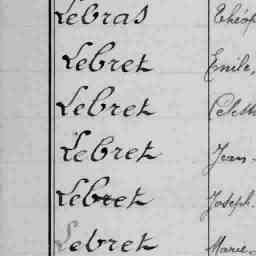 Lebras Théop
Lebret Emile,
Lebret Célest
Lebret Jean-
Lebret Joseph.
Lebret Marie-